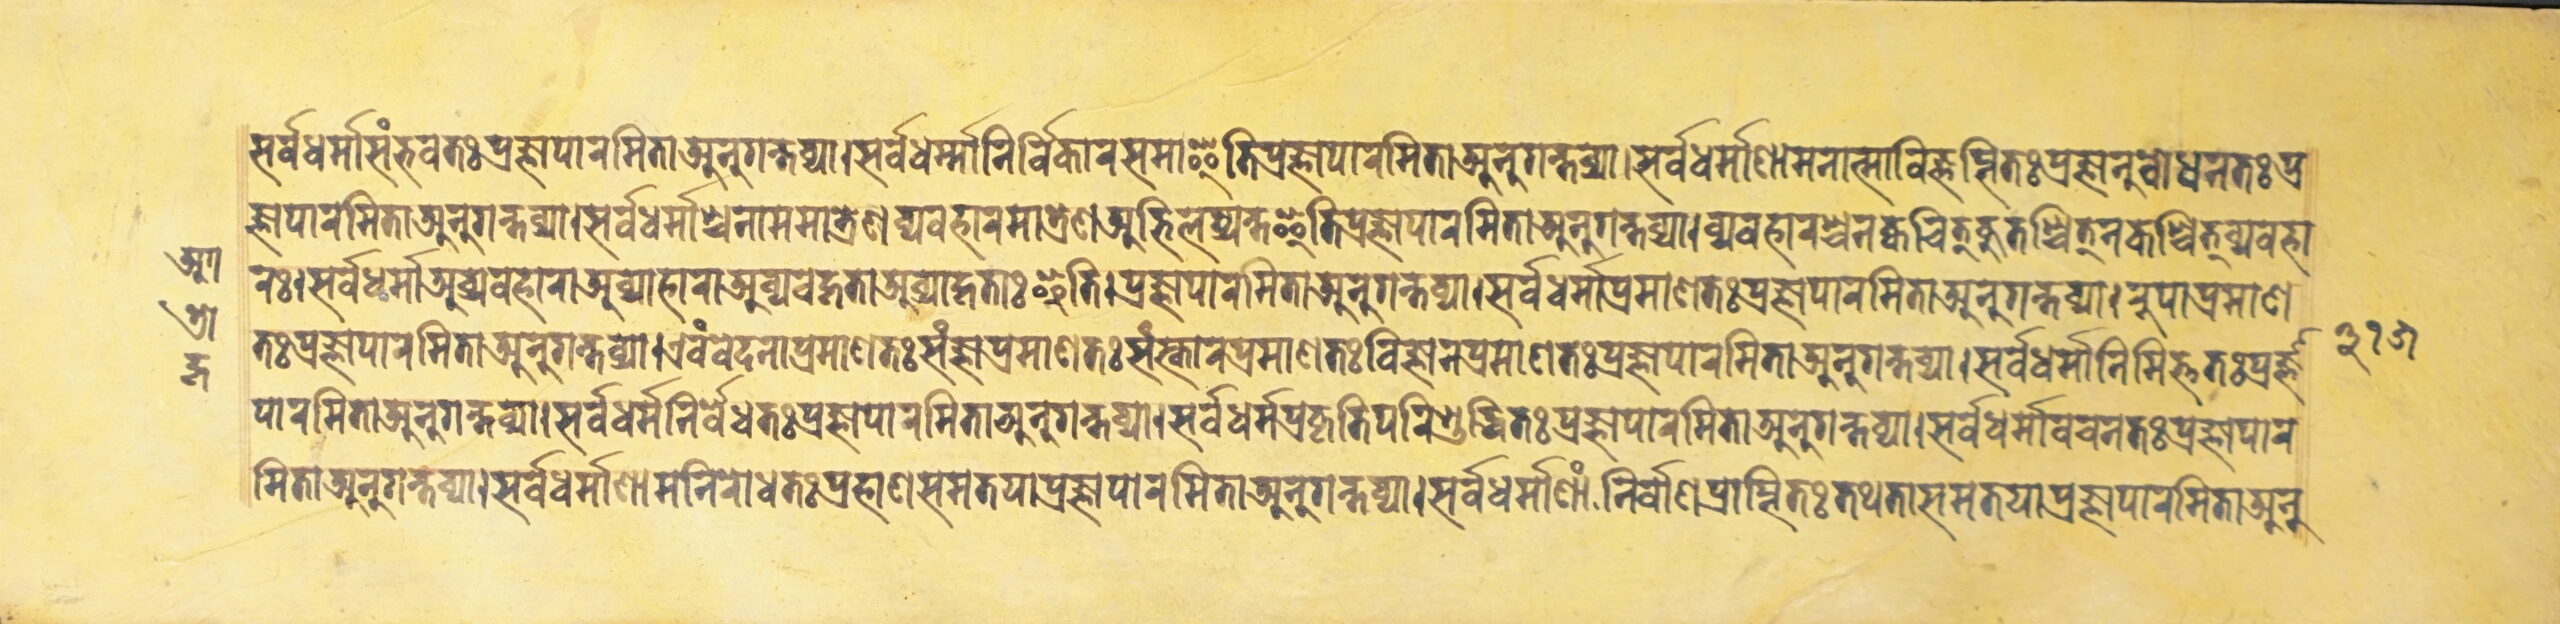 सर्वधर्मासंभवतः प्रज्ञापारमिता अनुगन्तव्या। सर्वधर्म्मा निर्विकारसमा इति प्रज्ञापारमिता अनुगन्तव्या। सर्वधर्माणामनात्माविज्ञप्तितः प्रज्ञानुबोधनतः प्र
ज्ञापारमिता अनुगन्तव्या। सर्वधर्माश्च नाममात्रेण व्यवहारमात्रेण अभिलप्यन्त इति प्रज्ञापारमिता अनुगन्तव्या। व्यवहारश्च न क्वचित् कुतश्चित् न कश्चित् व्यवहा
रः। सर्वधर्मा अव्यवहारा अव्याहारा अव्यवहृता अव्याहृताः इति। प्रज्ञापारमिता अनुगन्तव्या। सर्वधर्माप्रमाणतः प्रज्ञापारमिता अनुगन्तव्या। रुपाप्रमाण
तः प्रज्ञापारमिता अनुगन्तव्या। एवं वेदनाप्रमाणतः संज्ञाप्रमाणतः संस्कारप्रमाणतः विज्ञानप्रमाणतः प्रज्ञापारमिता अनुगन्तव्या। सर्वधर्मानिमित्ततः प्रर्ज्ञा
पारमिता अनुगन्तव्या। सर्वधर्मनिर्वेधतः प्रज्ञापारमिता अनुगन्तव्या। सर्वधर्मप्रकृतिपरिशुद्धितः प्रज्ञापारमिता अनुगन्तव्या। सर्वधर्मावचनतः प्रज्ञापार
मिता अनुगन्तव्या। सर्वधर्माणामनिरोधतः प्रहाणसमतया प्रज्ञापारमिता अनुगन्तव्या। सर्वधर्माणां निर्वाणप्राप्तितः तथतासमतया प्रज्ञापारमिता अनु